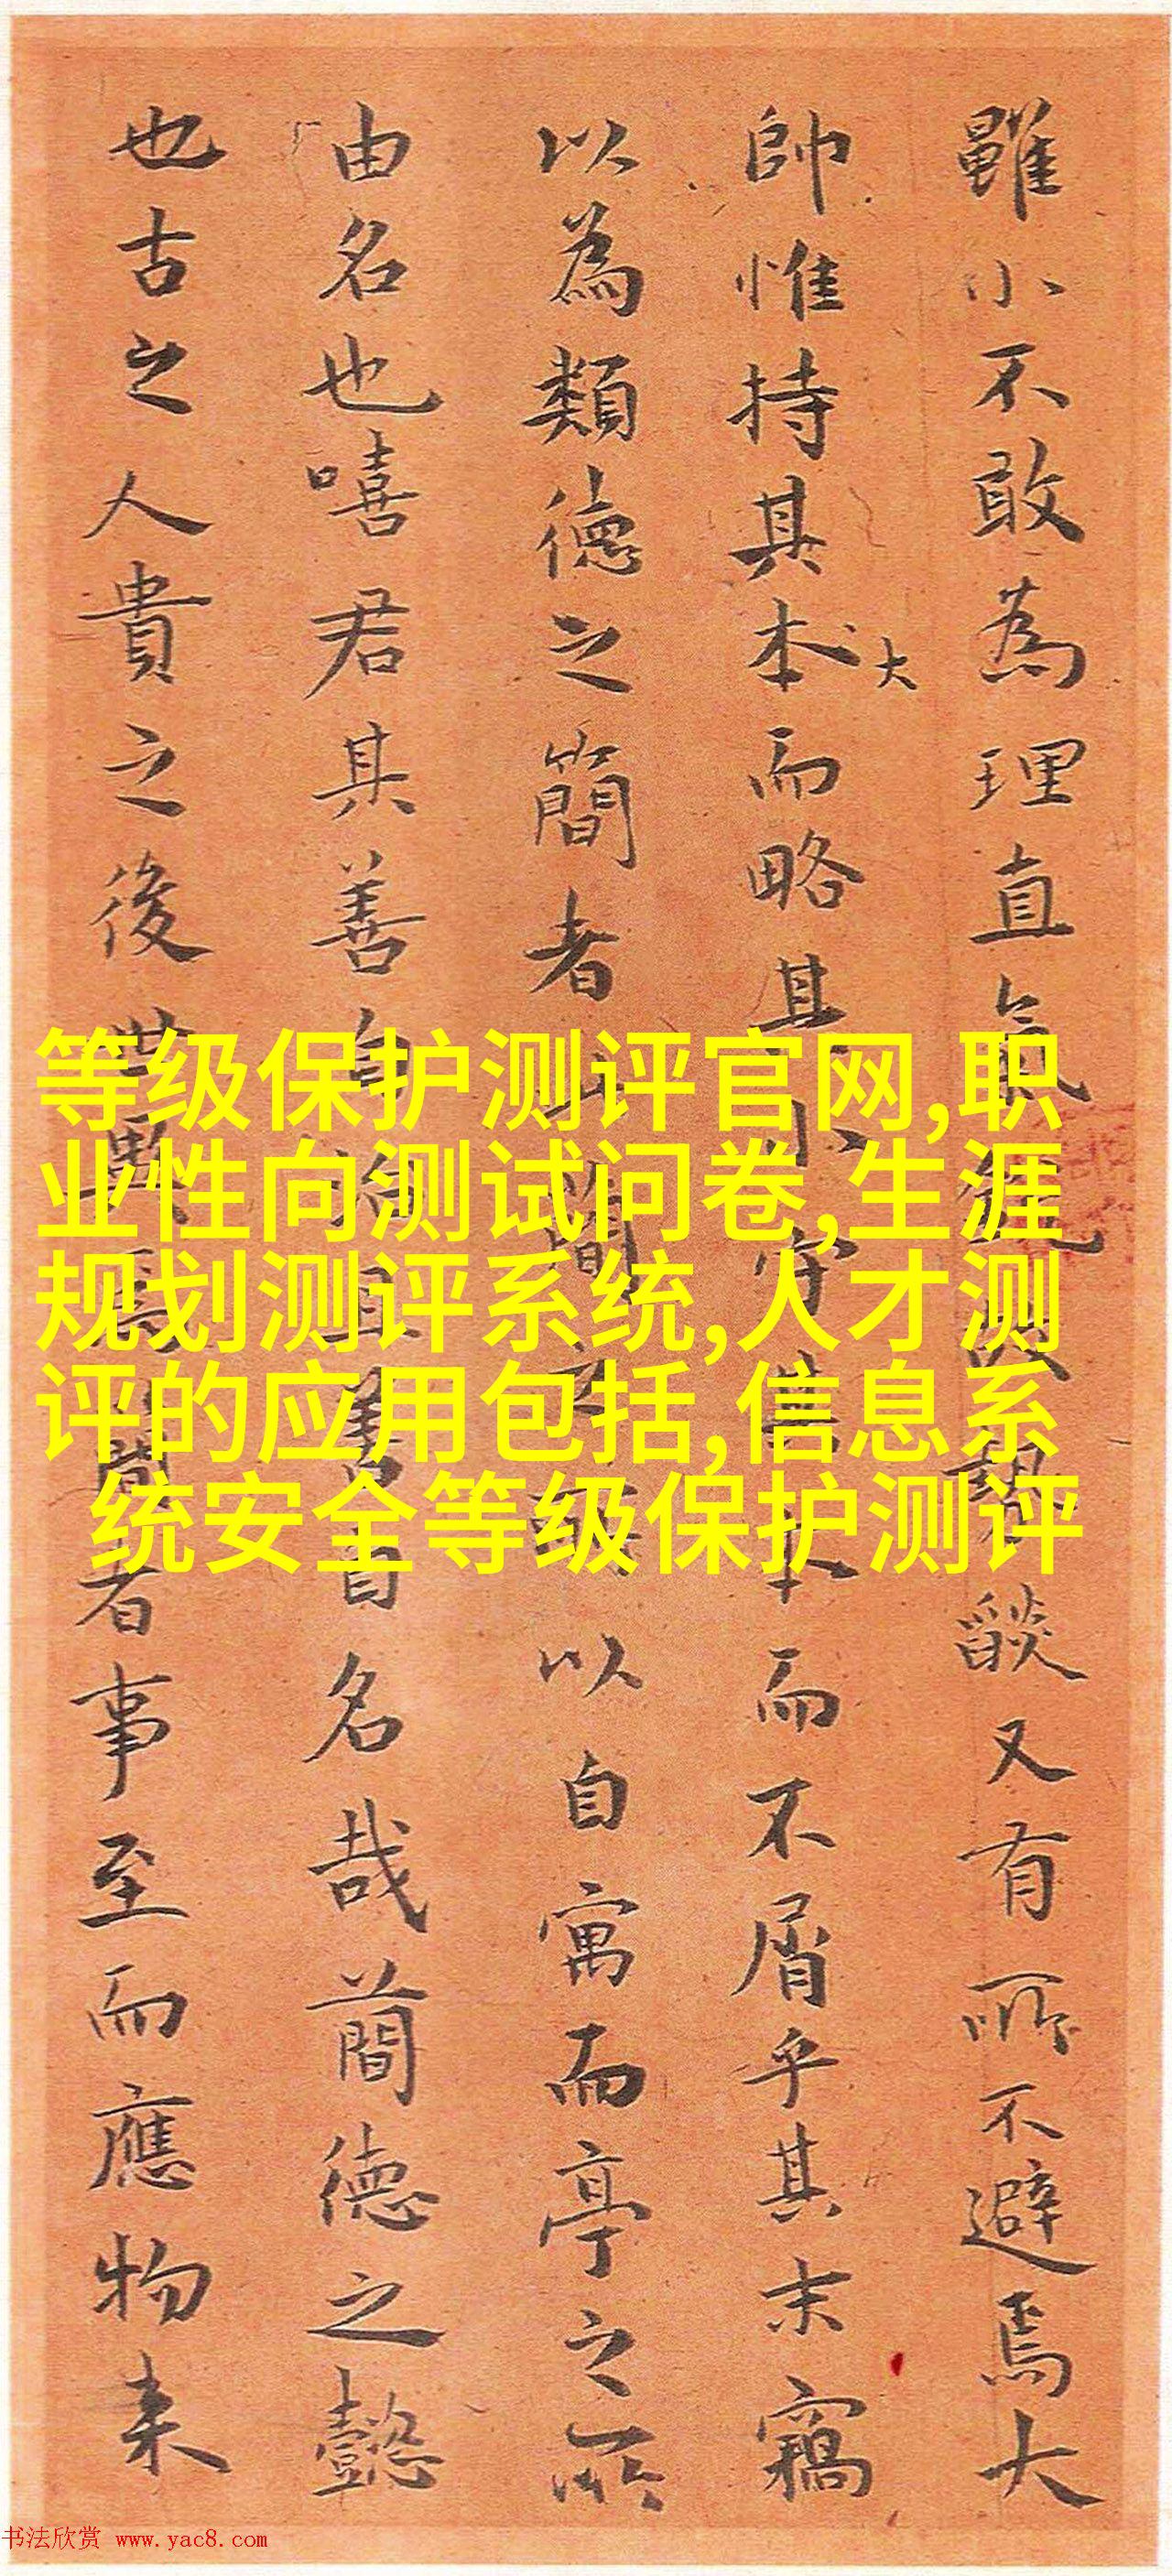 雖小不敢為理直氣燄又有所不避焉大
帥惟持其本大而略其小守其本而不屑乎其末竊
以為類德之簡者間之以自寓而亭之所
由名也嘻君其善自自名哉簡德之懿
也古之人貴之後世者事至而應物来
等级保护测评官网,职
业性向测试问卷,生涯
规划测评系统,人才测
评的应用包括,信息系
统安全等级保护测评
书法欣赏 www.yac8.com